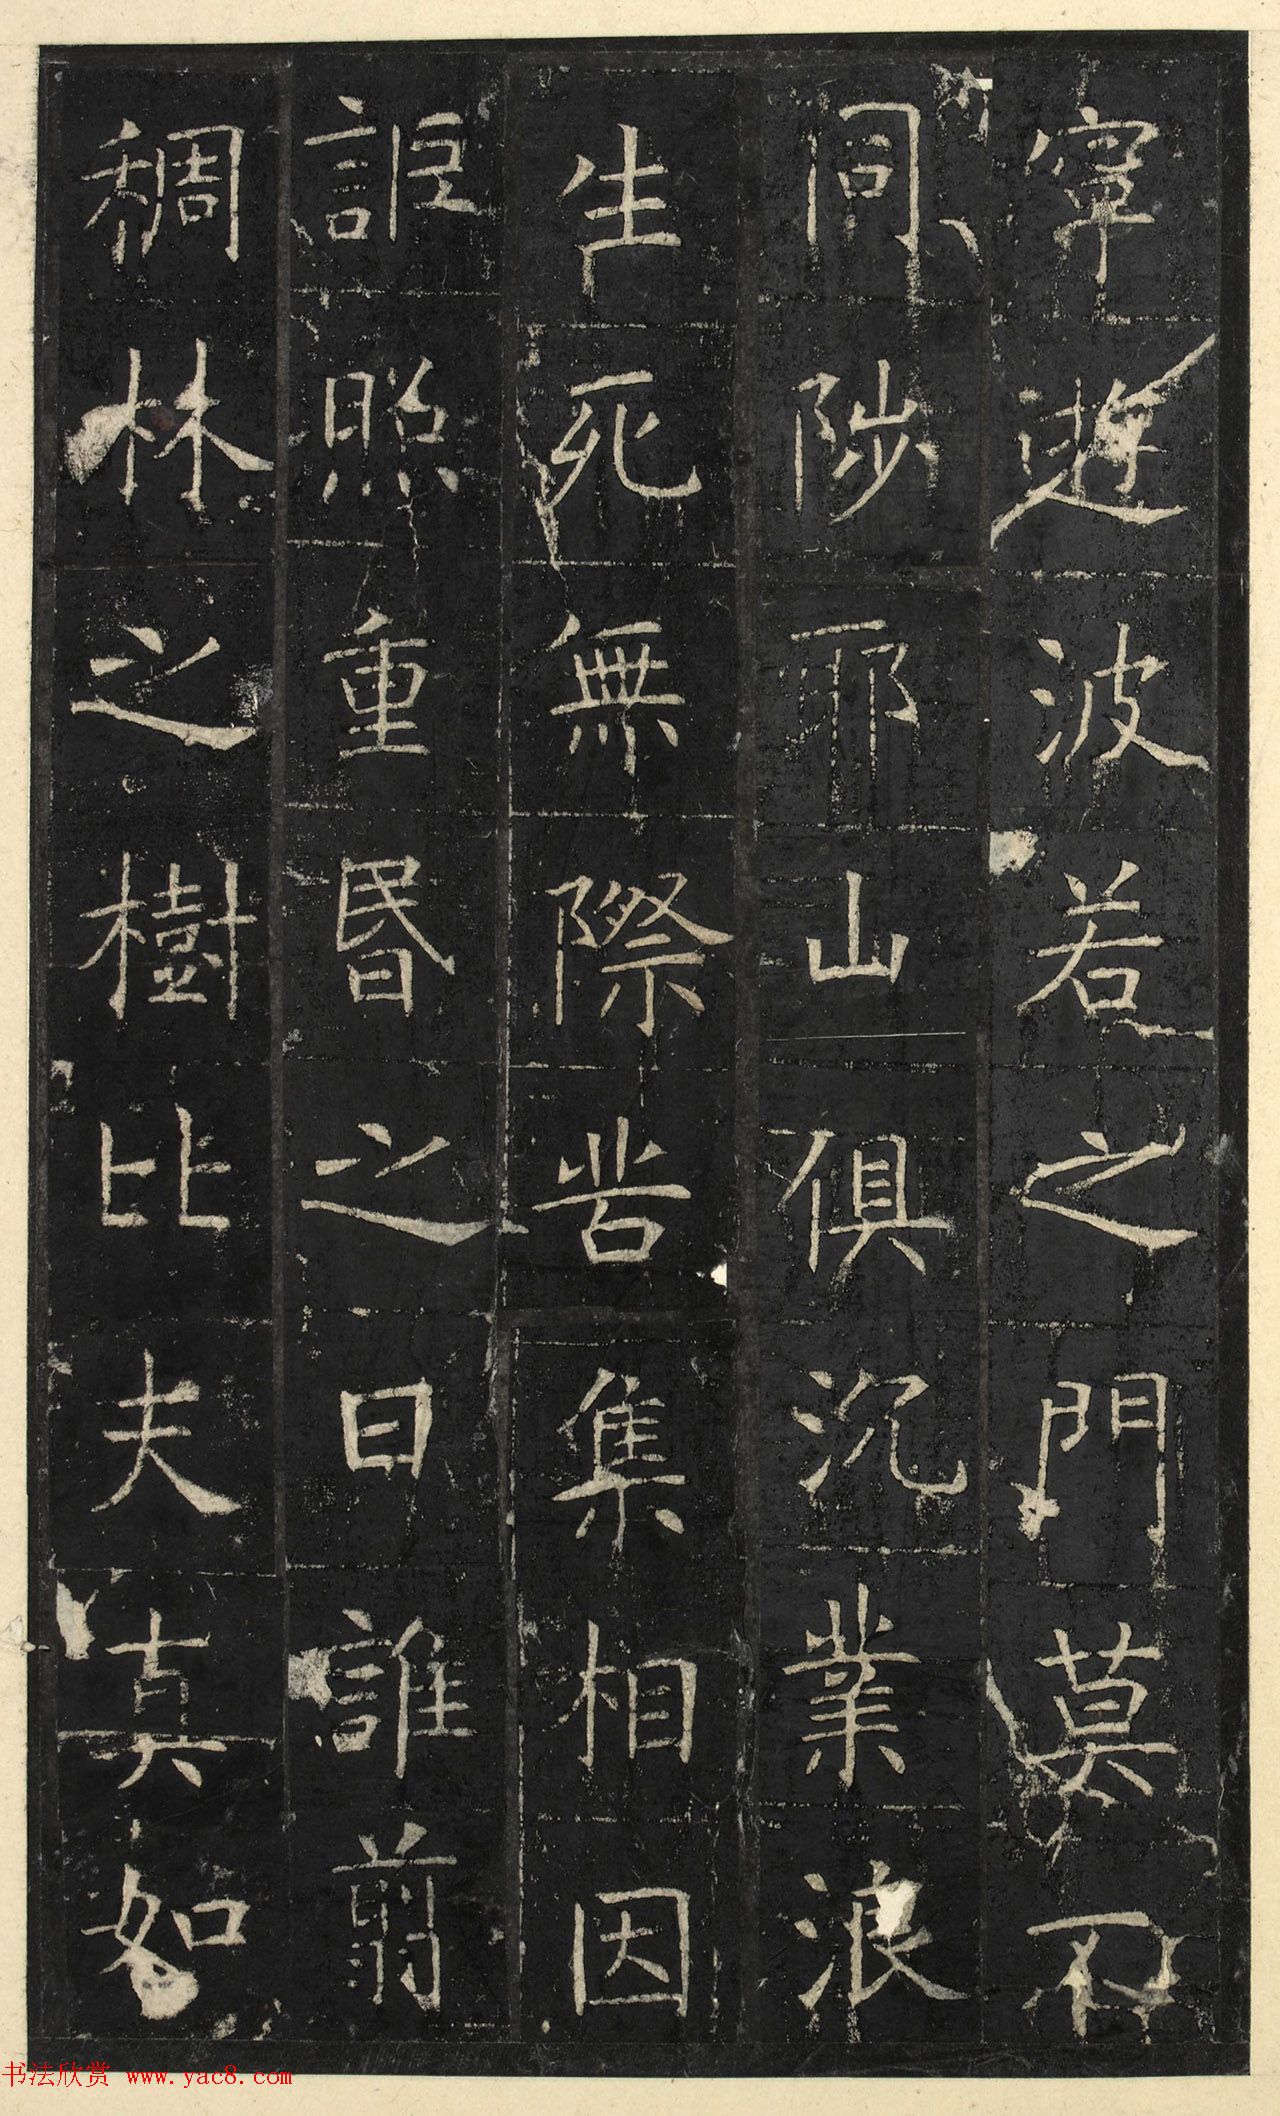 寧遊波若之門莫不
同陟耶山俱沉業浪
生死無際苦集相因
詎照重昏之日誰翦
稠林之樹比夫真如
书法欣赏 www.yac8.com